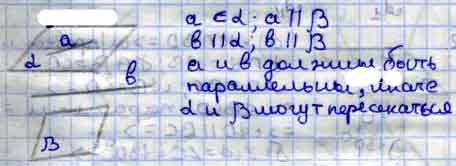 a ∈ α; a ∥ β
в ∥ α; в ∥ β
a и в должны быть
параллельны, иначе
α и β могут пересекаться
a
α
в
β